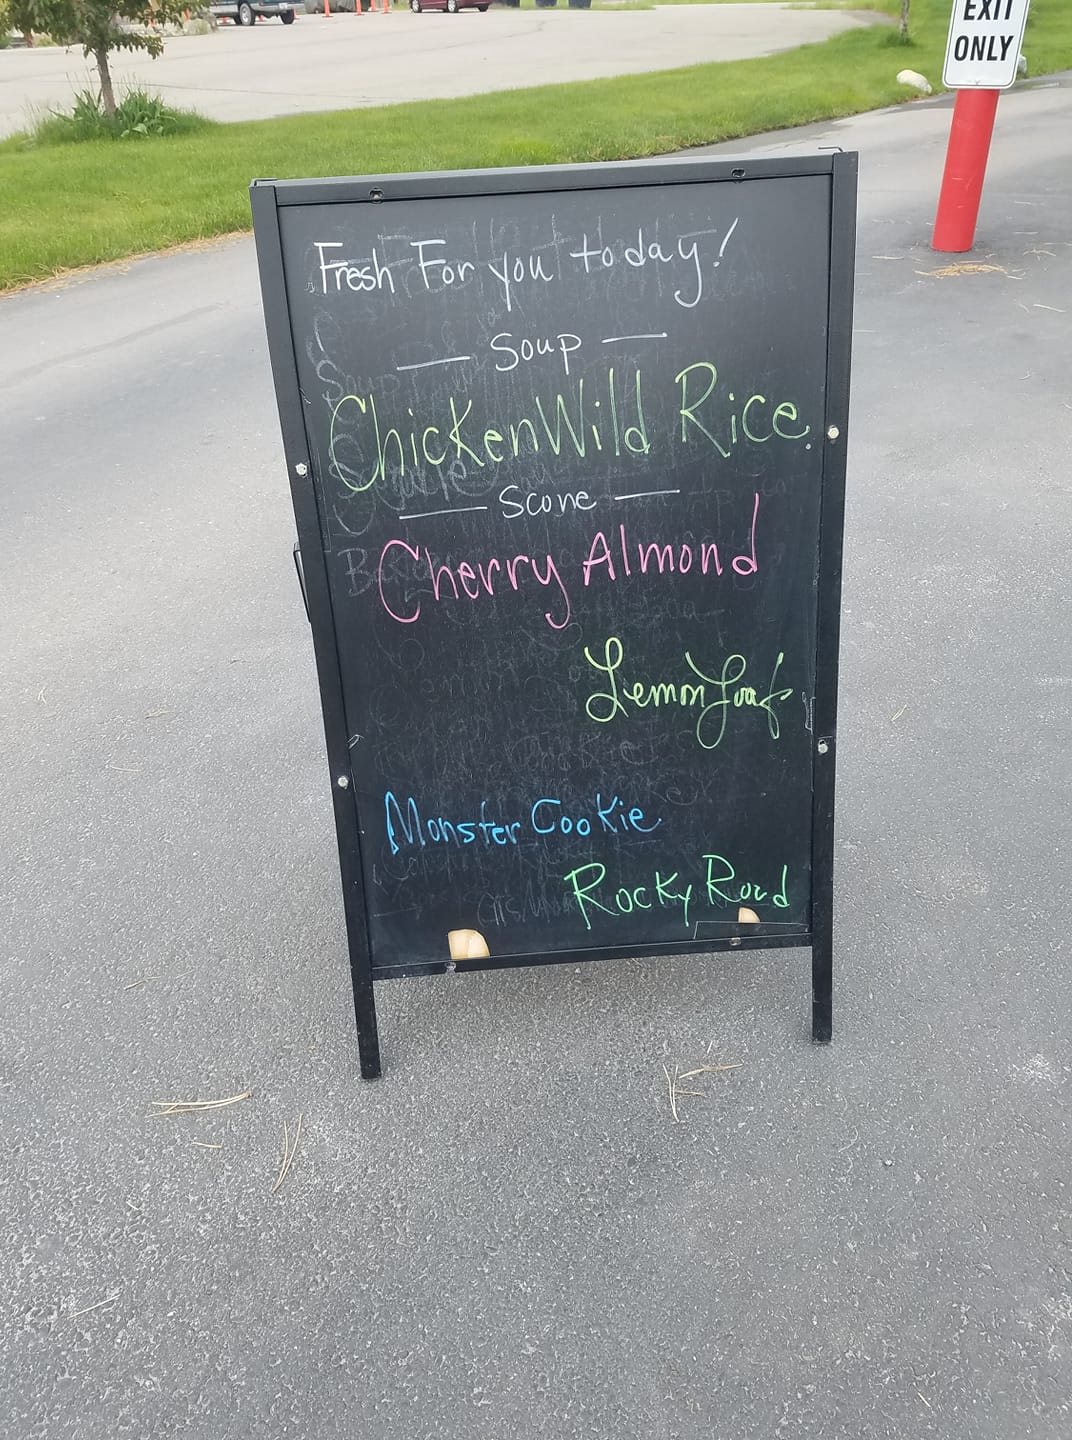 EXIT
ONLY
Fresh For you today!
— Soup —
Chicken Wild Rice
— Scone —
Cherry Almond
Lemon Loaf
Monster Cookie
Rocky Road